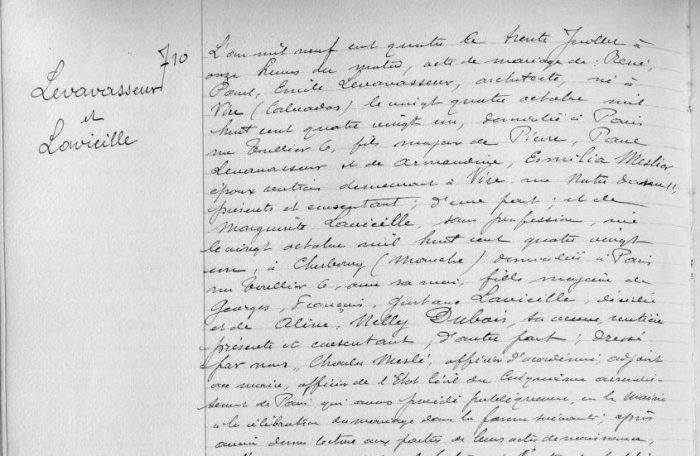 710
Levavasseur
et
Lavieille
L'an mil neuf cent quatre le trente Juillet à
onze heures du matin, acte de mariage de : René,
Paul, Emile Levavasseur, architecte, né à
Vire (Calvados) le vingt quatre octobre mil
huit cent quatre vingt un, domicilié à Paris
rue Toullier 6, fils majeur de Pierre, Paul
Levavasseur et de Armandine, Esmilia Meslier
époux rentiers demeurant à Vire rue Notre Dame 11,
présents et consentant ; d'une part ; et de
Marguerite Lavieille, sans profession, née
le vingt octobre mil huit cent quatre vingt
un, à Cherbourg (Manche) domiciliée à Paris
rue Toullier 6, avec sa mère, fille majeure de
Georges, François, Gustave Lavieille, décédé
et de Aline, Nelly Dubois, sa veuve, rentière
présente et consentant, d'autre part ; dressé
par nous, Charles Meslé, officier d'académie, adjoint
au maire, officier de l'Etat Civil du Cinquième arrondis-
sement de Paris qui avons procédé publiquement, en la Mairie
à la célébration du mariage dans la forme suivante ; après
avoir donné lecture aux parties de leurs actes de naissance,